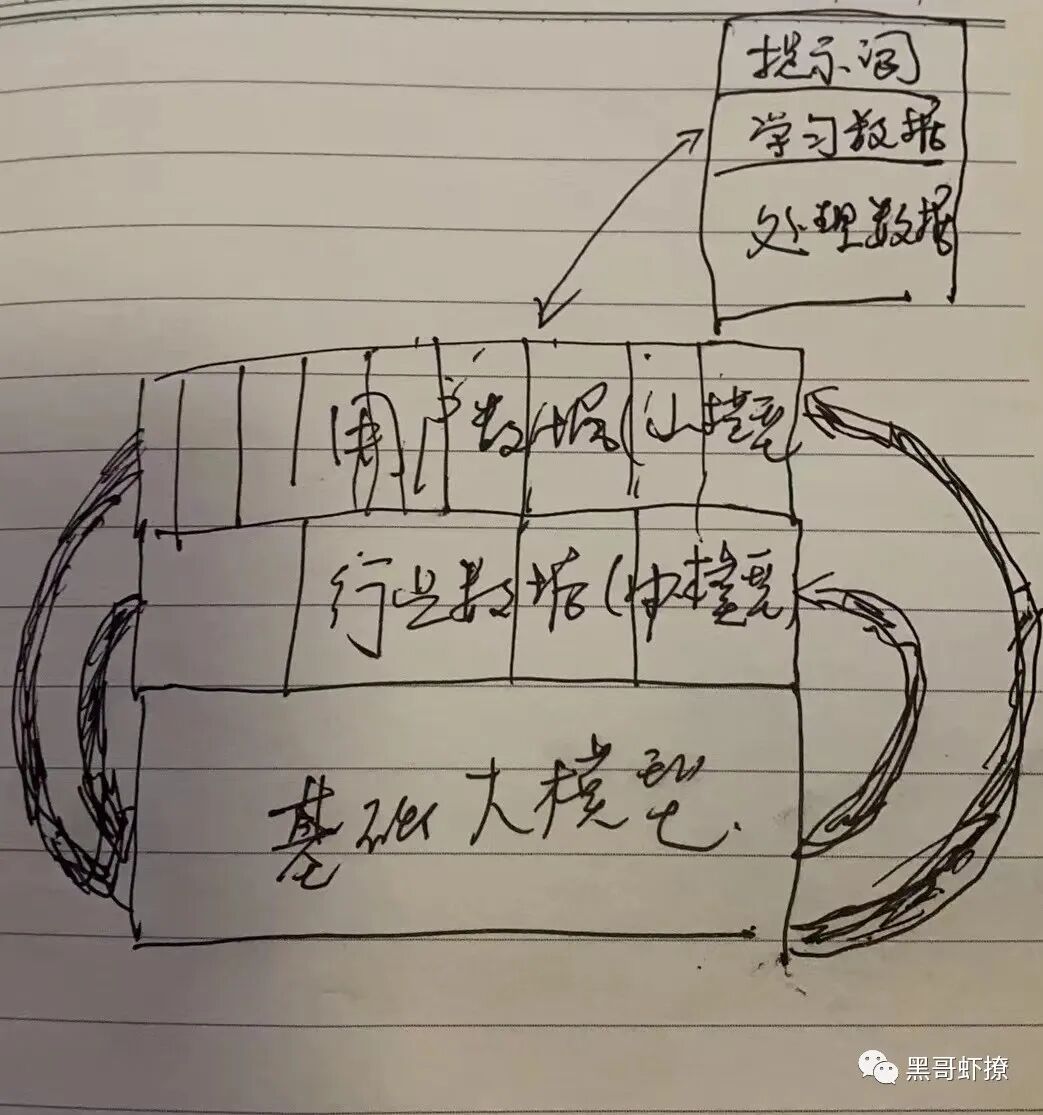 提示词
学习数据
处理数据
用户数据(小模型
行业数据(中模型)
基础大模型
黑哥虾撩